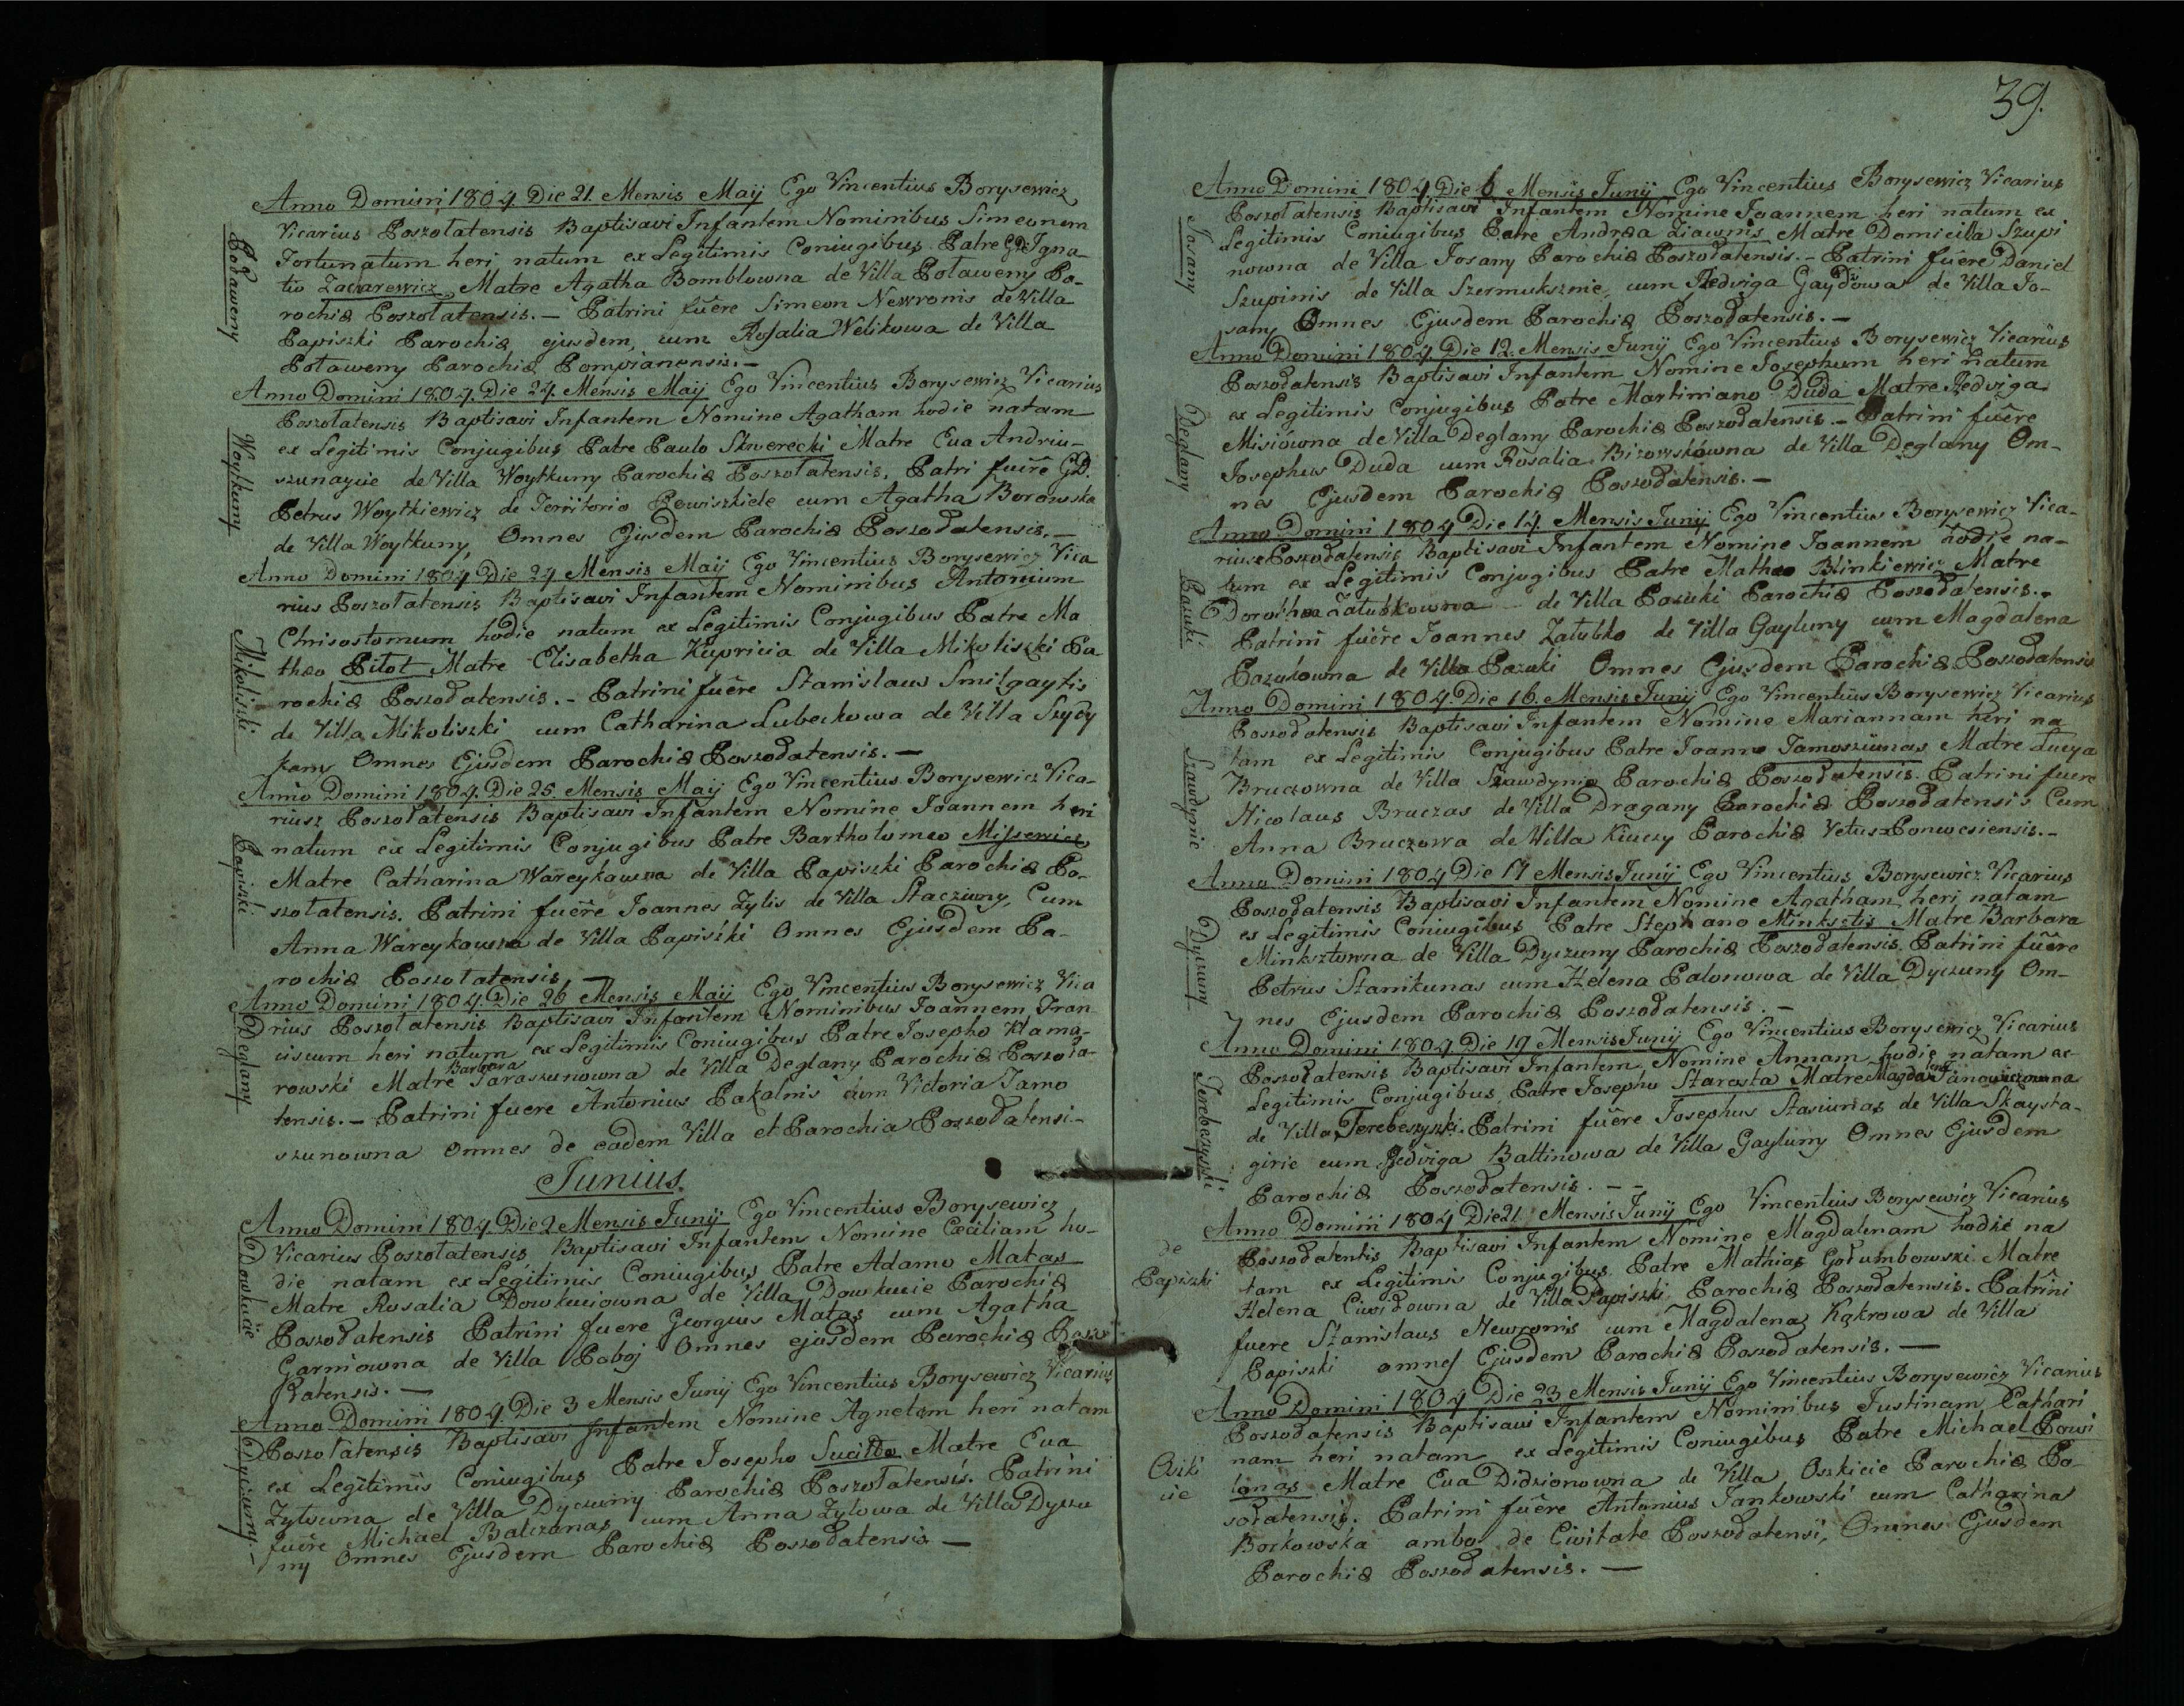 Anno Domini 1804 Die 21. Mensis Maij Ego Vincentius Borysewicz
Vicarius Poszołatensis Baptisavi Infantem Nominibus Simeonem
Fortunatum heri natum ex Legitimis Coniugibus Patre GD Igna
tio Zacharewicz Matre Agatha Bomblowna de Villa Potaweny Pa-
rochiæ Poszołatensis. – Patrini fuêre Simeon Newronis de Villa
Papiszki Parochiæ ejusdem, cum Rosalia Welikowa de Villa
Potaweny Parochiæ Pompianensis. –
Podaweny
Anno Domini 1804. Die 24. Mensis Maij Ego Vincentius Borysewicz Vicarius
Poszołatensis Baptisavi Infantem Nomine Agatham hodie natam
ex Legitimis Conjugibus Patre Paulo Skwerecki Matre Eva Andriu-
szunaycie de Villa Woytkuny Parochiæ Poszołatensis. Patri fuêre GD.
Petrus Woytkiewicz de Territorio Powiszkiele cum Agatha Borowska
de Villa Woytkuny, Omnes Ejusdem Parochiæ Poszodatensis. –
Woytkuny
Anno Domini 1804 Die 24 Mensis Maij Ego Vincentius Borysewicz Vica
rius Poszołatensis Baptisavi Infantem Nominibus Antonium
Chrisostomum hodie natum ex Legitimis Conjugibus Patre Ma
thæo Pitot Matre Elisabetha Kupricia de Villa Mikoliszki Pa
rochiæ Poszodatensis. – Patrini fuêre Stanislaus Smilgaytis
de Villa Mikoliszki cum Catharina Lubeckowa de Villa Szydy
kany Omnes Ejusdem Parochiæ Poszodatensis. –
Mikoliszki
Anno Domini 1804. Die 25. Mensis Maij Ego Vincentius Borysewicz Vica-
riusz Poszołatensis Baptisavi Infantem Nomine Joannem heri
natum ex Legitimis Conjugibus Patre Bartholomeo Missewicz
Matre Catharina Wareykowna de Villa Papiszki Parochiæ Po-
szołatensis. Patrini fuêre Joannes Zylis de Villa Stacziuny, Cum
Anna Wareykowna de Villa Papiszki Omnes Ejusdem Pa-
rochiæ Poszołatensis –
Papiszki
Anno Domini 1804. Die 26 Mensis Maij Ego Vincentius Borysewicz Vica
rius Poszołatensis Baptisavi Infantem Nominibus Joannem Fran
ciscum heri natum ex Legitimis Coniugibus Patre Josepho Klama-
rowski Matre Barbara Taraszunowna de Villa Deglany Parochiæ Poszoda-
tensis. – Patrini fuere Antonius Pakalnis cum Victoria Jamo
szunowna omnes de eadem Villa et Parochia Poszodatensi –
Deglany
Junius.
Anno Domini 1804. Die 2 Mensis Junij Ego Vincentius Borysewicz
Vicarius Poszołatensis Baptisavi Infantem Nomine Cæciliam ho-
die natam ex Legitimis Coniugibus Patre Adamo Matas
Matre Rosalia Dowkuciowna de Villa Dowkucie Parochiæ
Poszodatensis Patrini fuere Georgius Matas cum Agatha
Garniowna de Villa Poboj Omnes ejusdem Parochiæ Poszo
datensis. –
Dowkucie
Anno Domini 1804. Die 3 Mensis Junij Ego Vincentius Borysewicz Vicarius
Poszołatensis Baptisavi Infantem Nomine Agnetem heri natam
ex Legitimis Coniugibus Patre Josepho Suciłdo Matre Eva
Zylowna de Villa Dyczuny Parochiæ Poszołatensis. Patrini
fuêre Michael Balczunas cum Anna Zylowa de Villa Dyczu
ny Omnes Ejusdem Parochiæ Poszodatensis –
Dyczuny. –
39.
Anno Domini 1804 Die 6 Mensis Junij Ego Vincentius Borysewicz Vicarius
Poszołatensis Baptisavi Infantem Nomine Joannem heri natum ex
Legitimis Coniugibus Patre Andræa Ziawnis Matre Domicilla Szupi
nowna de Villa Josany Parochiæ Poszodatensis. – Patrini fuere Daniel
Szupinis de Villa Szermuksznie, cum Hedviga Gaydowa de Villa Jo-
sany Omnes Ejusdem Parochiæ Poszodatensis. –
Josany
Anno Domini 1804. Die 12. Mensis Junij Ego Vincentius Borysewicz Vicarius
Poszodatensis Baptisavi Infantem Nomine Josephum heri natum
ex Legitimis Conjugibus Patre Martiniano Duda Matre Hedviga
Misiówna de Villa Deglany Parochiæ Poszodatensis. – Patrini fuêre
Josephus Duda cum Rosalia Birowskówna de Villa Deglany Om-
nes Ejusdem Parochiæ Poszodatensis. –
Deglany
Anno Domini 1804 Die 14. Mensis Junij Ego Vincentius Borysewicz Vica-
rius Poszodatensis Baptisavi Infantem Nomine Joannem hodie na-
tum ex Legitimis Conjugibus Patre Mathæo Blinkiewicz Matre
Dorothea Załubkowna de Villa Pazuki Parochiæ Poszodatensis. –
Patrini fuêre Joannes Załubko de Villa Gayluny cum Magdalena
Pazukowna de Villa Pazuki Omnes Ejusdem Parochiæ Poszodatensis
Pazuki
Anno Domini 1804. Die 16. Mensis Junij Ego Vincentius Borysewicz Vicarius
Poszodatensis Baptisavi Infantem Nomine Mariannam heri na
tam ex Legitimis Conjugibus Patre Joanne Jamoszunas Matre Lucya
Bruczowna de Villa Szawdynie Parochiæ Poszodatensis. Patrini fuere
Nicolaus Bruczas de Villa Dragany Parochiæ Poszodatensis Cum
Anna Bruczowa de Villa Kiuczy Parochiæ Vetus Ponwesiensis. –
Szawdynie
Anno Domini 1804 Die 17 Mensis Junij Ego Vincentius Borysewicz Vicarius
Poszodatensis Baptisavi Infantem Nomine Agatham heri natam
ex Legitimis Coniugibus Patre Stephano Minksztis Matre Barbara
Minksztowna de Villa Dyczuny Parochiæ Poszodatensis. Patrini fuêre
Petrus Stanikunas cum Helena Palonowa de Villa Dyczuny Om-
nes Ejusdem Parochiæ Poszodatensis. –
Dyczuny
Anno Domini 1804 Die 19 Mensis Junij Ego Vincentius Borysewicz Vicarius
Poszołatensis Baptisavi Infantem Nomine Annam hodie natam ex
Legitimis Conjugibus, Patre Josepho Starosta Matre Magdalena Janowiczowna
de Villa Terebeszyszki. Patrini fuêre Josephus Stasiunas de Villa Skaysta-
girie cum Hedviga Baltinowa de Villa Gayluny Omnes Ejusdem
Parochiæ Poszodatensis. – –
Terebeszyszki
Anno Domini 1804 Die 21 Mensis Junij Ego Vincentius Borysewicz Vicarius
Poszodatentis Baptisavi Infantem Nomine Magdalenam hodie na
tam ex Legitimis Conjugibus Patre Mathias Gołumbowski Matre
Helena Ciwidowna de Villa Papiszki Parochiæ Poszodatensis. Patrini
fuere Stanislaus Newronis cum Magdalena Kąkrowa de Villa
Papiszki omnes Ejusdem Parochiæ Poszodatensis. –
de
Papiszki
Anno Domini 1804 Die 23 Mensis Junij Ego Vincentius Borysewicz Vicarius
Poszodatensis Baptisavi Infantem Nominibus Justinam Cathari
nam heri natam ex Legitimis Coniugibus Patre Michael Powi
lonas Matre Eva Didzionowna de Villa Oszkicie Parochiæ Po-
sodatensis. Patrini fuêre Antonius Jankowski cum Catharina
Borkowska ambo de Civitate Poszodatensi, Omnes Ejusdem
Parochiæ Poszodatensis. –
Oszki
cie